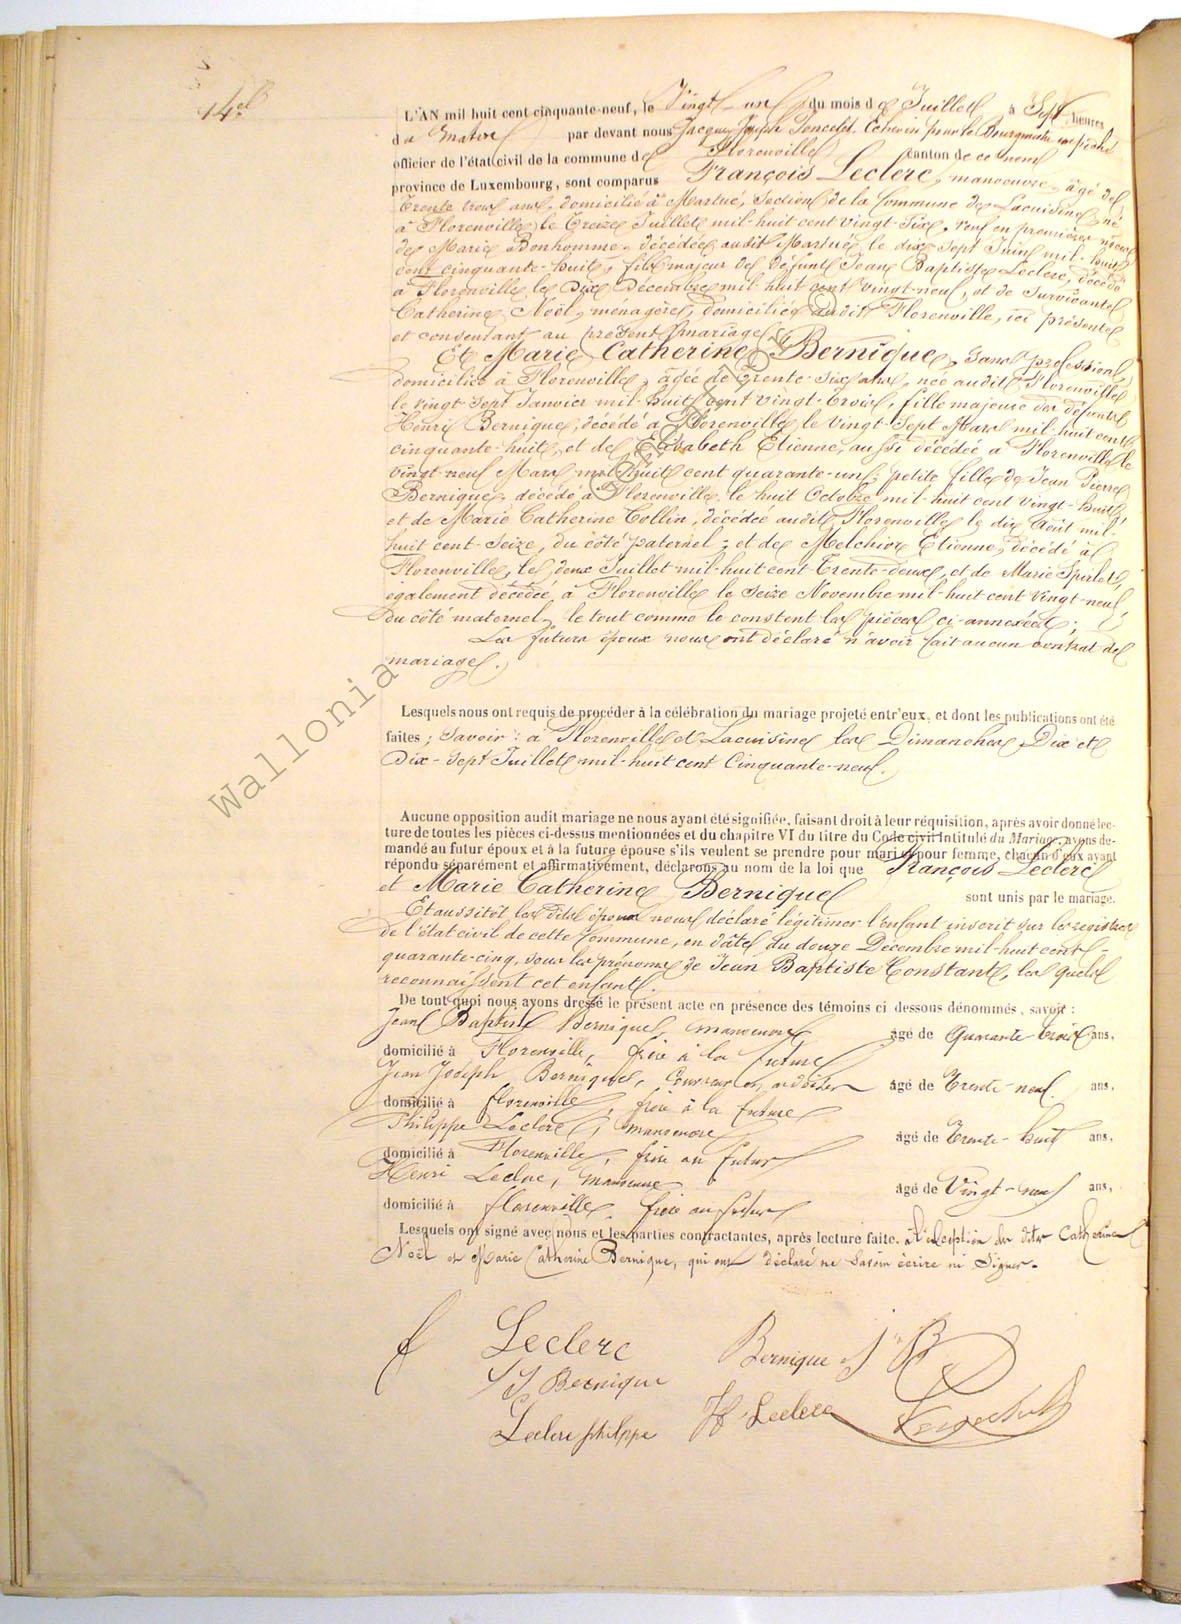 14e
L'AN mil huit cent cinquante-neuf, le Vingt-un du mois de Juillet à Sept heures
du matin par devant nous Jacques Joseph Poncelet, Echevin pour le Bourgmestre empêché
officier de l'état civil de la commune de Florenville canton de ce nom
province de Luxembourg, sont comparus François Leclerc, manoeuvre, âgé de
Trente trois ans, domicilié à Martué, Section de la Commune de Lacuisine, né
à Florenville le Treize Juillet mil-huit cent vingt-Six, veuf en premières noces
de Marie Bonhomme, décédée audit Martué le dix Sept Juin mil-huit
cent cinquante-huit, fils majeur de défunt Jean Baptiste Leclerc, décédé
à Florenville le Dix Décembre mil-huit cent vingt-neuf, et de Survivante
Catherine Noël, ménagère, domiciliée audit Florenville, ici présente
et consentant au présent mariage
Et Marie Catherine Bernique, Sans profession,
domiciliée à Florenville, âgée de Trente-Six ans, née audit Florenville
le vingt Sept Janvier mil-huit cent vingt-trois, fille majeure des défunts
Henri Bernique, décédé à Florenville le vingt-Sept Mars mil-huit cent
cinquante-huit, et de Elisabeth Etienne, aussi décédée à Florenville le
vingt-neuf Mars mil-huit cent quarante-un; petite fille de Jean Pierre
Bernique, décédé à Florenville le huit Octobre mil-huit cent vingt-huit,
et de Marie Catherine Collin, décédée audit Florenville le dix Août mil-
huit cent-Seize, du côté paternel; et de Melchior Etienne, décédé à
Florenville, le deux Juillet mil-huit cent Trente-deux, et de Marie Spirlet,
également décédée à Florenville le Seize Novembre mil-huit cent vingt-neuf,
du côté maternel, le tout comme le constent les pièces ci-annexées;
Les futurs époux nous ont déclaré n'avoir fait aucun contrat de
mariage.
Lesquels nous ont requis de procéder à la célébration du mariage projeté entr'eux, et dont les publications ont été
faites; Savoir: à Florenville et Lacuisine les Dimanches, Dix et
Dix-Sept Juillet mil-huit cent Cinquante-neuf.
Aucune opposition audit mariage ne nous ayant été signifiée, faisant droit à leur réquisition, après avoir donné lec-
ture de toutes les pièces ci-dessus mentionnées et du chapitre VI du titre du Code civil intitulé du Mariage, avons de-
mandé au futur époux et à la future épouse s'ils veulent se prendre pour mari et pour femme, chacun d'eux ayant
répondu séparément et affirmativement, déclarons au nom de la loi que François Leclerc
et Marie Catherine Bernique sont unis par le mariage.
Et aussitôt les dits époux nous déclaré légitimer l'enfant inscrit sur les registres
de l'état civil de cette Commune, en date du douze Décembre mil-huit cent-
quarante-cinq, sous les prénoms de Jean Baptiste Constant, les quels
reconnaissent cet enfant.
De tout quoi nous avons dressé le présent acte en présence des témoins ci dessous dénommés, savoir:
Jean Baptiste Bernique, manoeuvre âgé de Quarante trois ans,
domicilié à Florenville, frère à la future
Jean Joseph Bernique, Couvreur en ardoises âgé de Trente-neuf ans,
domicilié à florenville, frère à la future
Philippe Leclerc, manoeuvre âgé de Trente-huit ans,
domicilié à Florenville, frère au futur
Henri Leclerc, manoeuvre âgé de Vingt-neuf ans,
domicilié à florenville, frère au futur
Lesquels ont signé avec nous et les parties contractantes, après lecture faite. à l'exception des dites Catherine
Noël et Marie Catherine Bernique, qui ont déclaré ne Savoir écrire ni Signer.
f Leclerc Bernique J B
JJ Bernique
Leclerc philippe H Leclerc Poncelet
Copyright © Wallonia